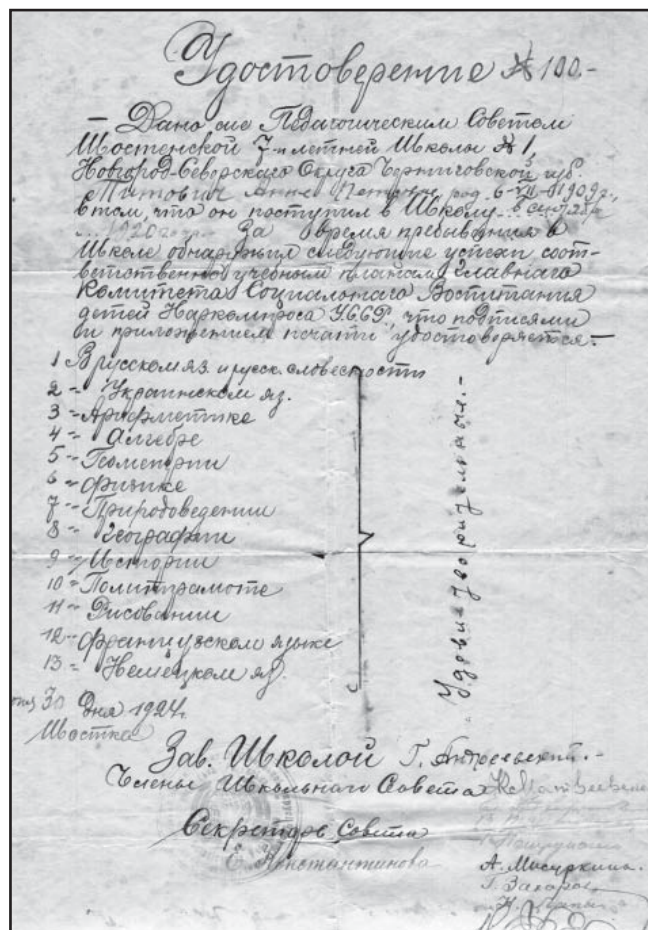 Удостоверение № 100.-
— Дано сие Педагогическим Советом
Шостенской 7-и летней Школы № 1,
Новгород-Северского Округа Черниговской губ.
Титович Анне Петровне род. 6-VII-1909 г.,
в том, что он поступил в Школу 5 сентября
1920 года. За время пребывания в
Школе обнаружил следующие успехи соот-
ветственно учебным планам Главнаго
Комитета Социальнаго Воспитания
детей Наркомпроса У.С.С.Р., что подписями
и приложением печати удостоверяется:—
1 В русском яз. и русск. словесности
2 -"- Украинском яз.
3 -"- Арифметике
4 -"- Алгебре
5 -"- Геометрии
6 -"- Физике
7 -"- Природоведении
8 -"- Географии
9 -"- Истории
10 -"- Политграмоте
11 -"- Рисовании
12 -"- Французском языке
13 -"- Немецком яз.
Удовлетворительныя.-
30 Дня 1924
Шостка
Зав. Школой Г.
Члены Школьнаго Совета
Секретарь Совета
Е. Константинова
А. Мисуркина.
Г. Захаров